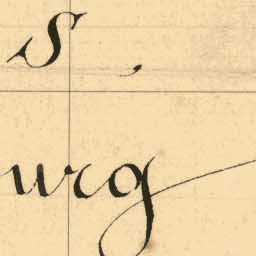 S,
urg